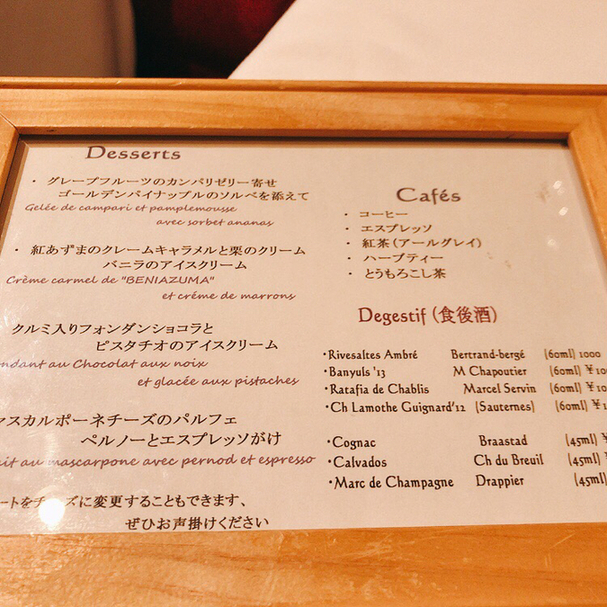 Desserts
・グレープフルーツのカンパリゼリー寄せ
ゴールデンパイナップルのソルベを添えて
Gelée de campari et pamplemousse
avec sorbet ananas
・紅あずまのクレームキャラメルと栗のクリーム
バニラのアイスクリーム
Crème carmel de "BENIAZUMA"
et créme de marrons
クルミ入りフォンダンショコラと
ピスタチオのアイスクリーム
ndant au Chocolat aux noix
et glacée aux pistaches
スカルポーネチーズのパルフェ
ペルノーとエスプレッソがけ
ait au mascarpone avec pernod et espresso
ートをチーズに変更することもできます、
ぜひお声掛けください
Cafés
・コーヒー
・エスプレッソ
・紅茶(アールグレイ)
・ハーブティー
・とうもろこし茶
Degestif (食後酒)
・Rivesaltes Ambré Bertrand-bergé (60ml) 1000
・Banyuls '13 M Chapoutier (60ml) ¥10
・Ratafia de Chablis Marcel Servin (60ml) ¥10
・Ch Lamothe Guignard'12 (Sauternes) (60ml) ¥1
・Cognac Braastad (45ml) ¥
・Calvados Ch du Breuil (45ml) ¥
・Marc de Champagne Drappier (45ml)